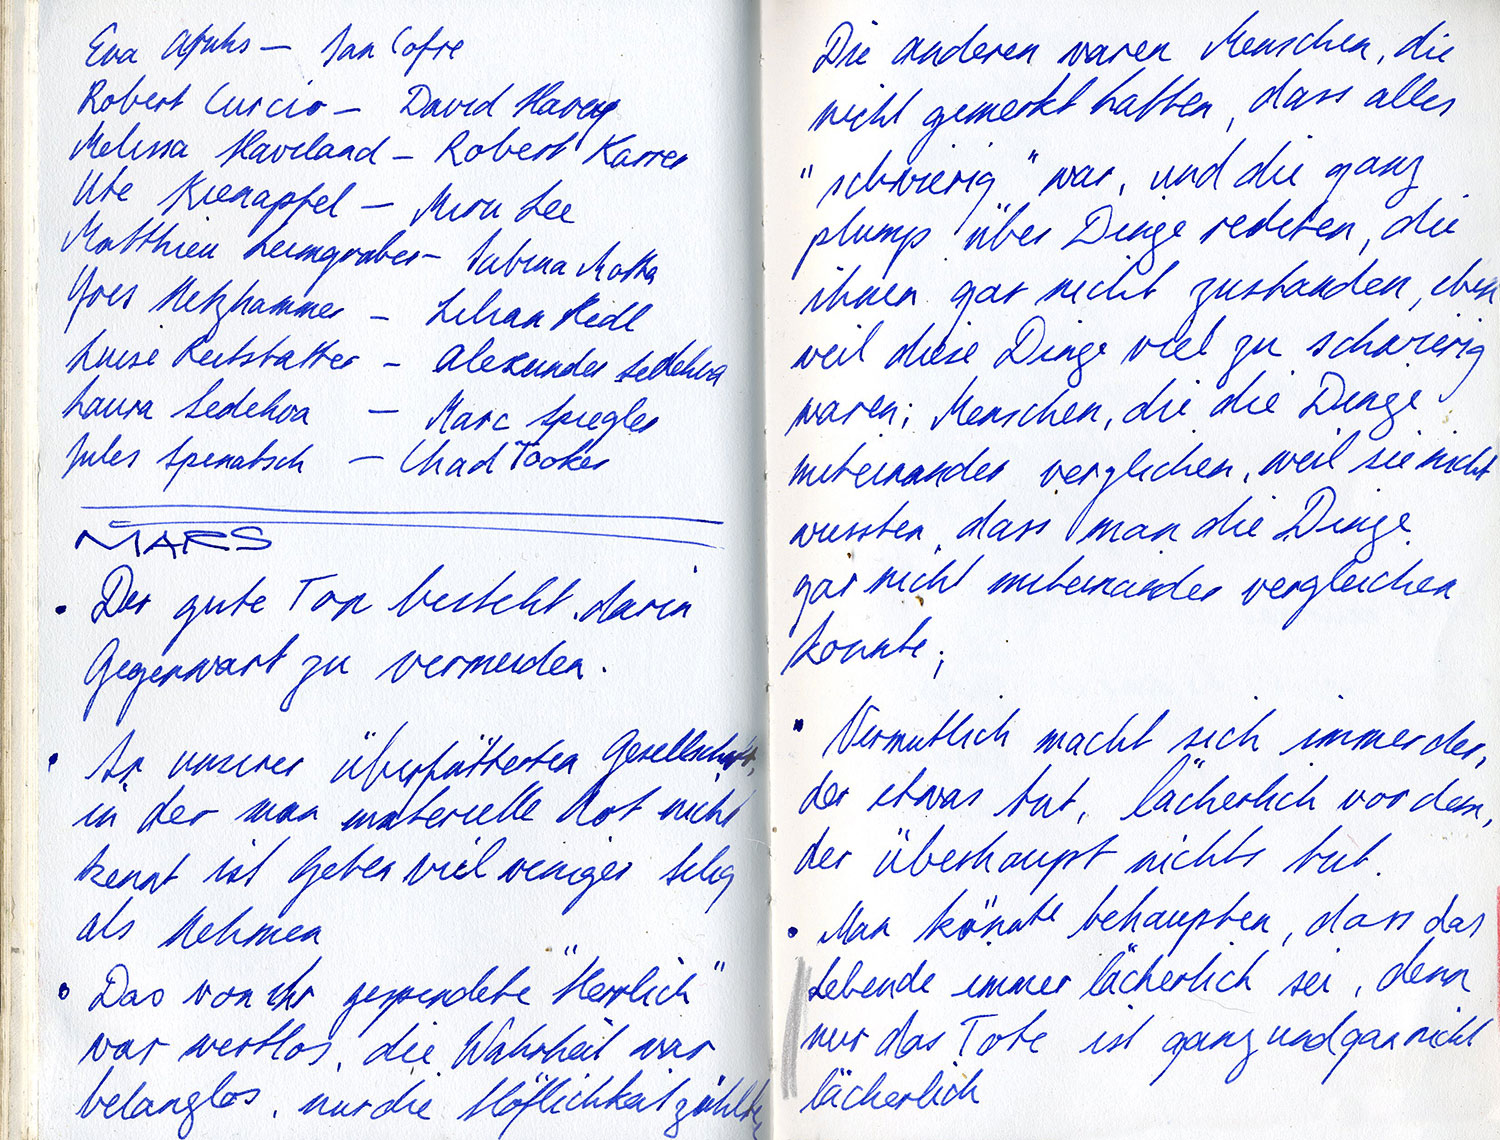 Eva Afuhs – Jan Cofre
Robert Curcio – David Harvey
Melissa Haviland – Robert Karrer
Ute Kienapfel – Miru Lee
Matthieu Leimgruber – Sabina Motta
Yves Netzhammer – Lilian Riedl
Luise Reitstätter – Alexander Sedelna
Laura Sedelna – Marc Spiegler
Jules Spinatsch – Chad Tooker
MARS
• Der gute Ton besteht darin
Gegenwart zu vermeiden.
• In unserer überfütterten Gesellschaft,
in der man materielle Not nicht
kennt ist Geben viel weniger selig
als Nehmen
• Das von ihr gespendete "Herrlich"
war wertlos, die Wahrheit war
belanglos, nur die Höflichkeit zählte
Die anderen waren Menschen, die
nicht gemerkt hatten, dass alles
"schwierig" war, und die ganz
plump über Dinge redeten, die
ihnen gar nicht zustanden, eben
weil diese Dinge viel zu schwierig
waren; Menschen, die die Dinge
miteinander verglichen, weil sie nicht
wussten, dass man die Dinge
gar nicht miteinander vergleichen
konnte;
• Vermutlich macht sich immer der,
der etwas tut, lächerlich vor dem,
der überhaupt nichts tut.
• Man könnte behaupten, dass das
Lebende immer lächerlich sei, denn
nur das Tote ist ganz und gar nicht
lächerlich